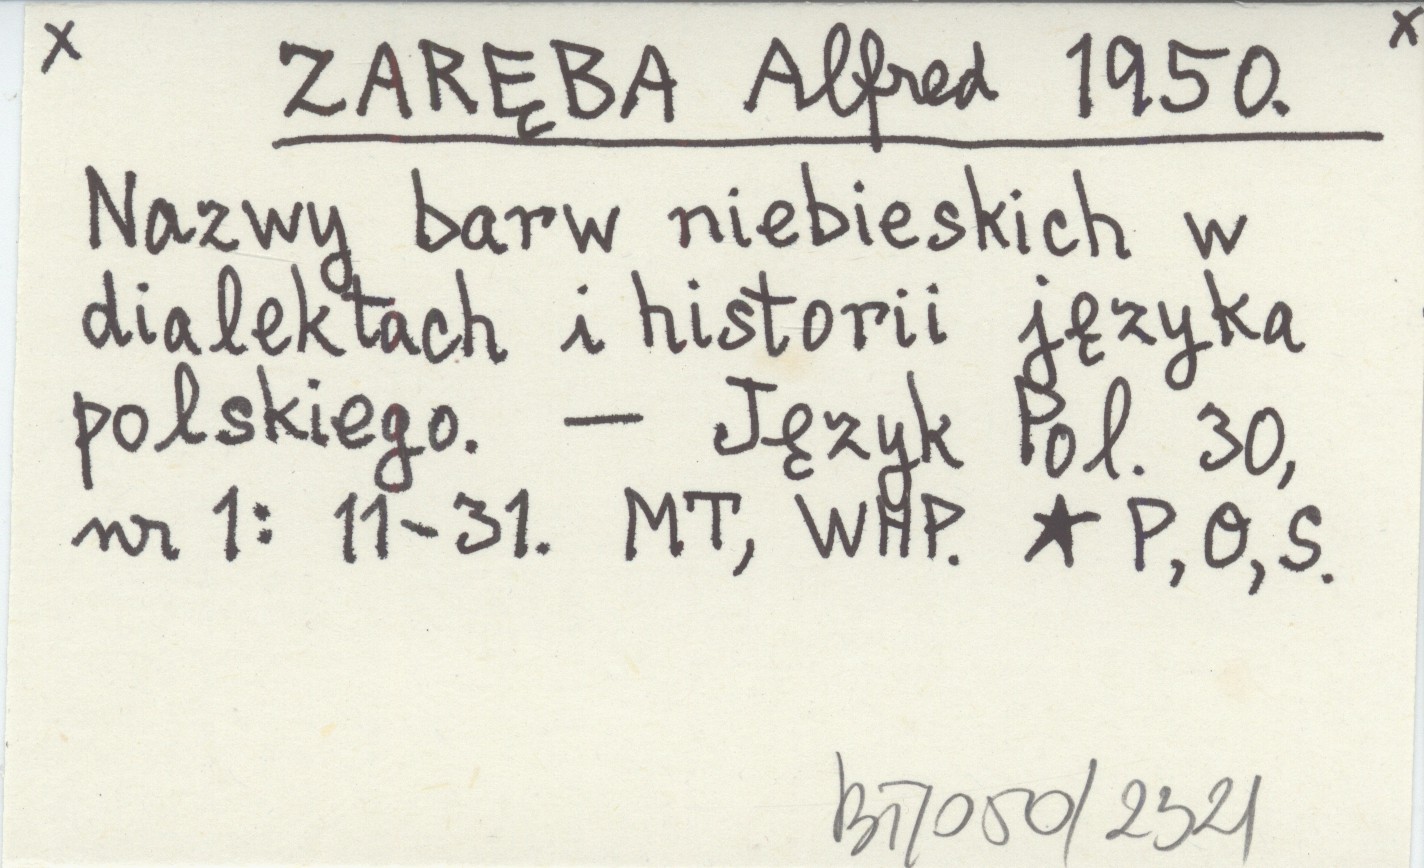 x x
ZARĘBA Alfred 1950.
Nazwy barw niebieskich w
dialektach i historii języka
polskiego. — Język Pol. 30,
nr 1: 11-31. MT, WHP. ★ P, O, S.
BT/050/2321